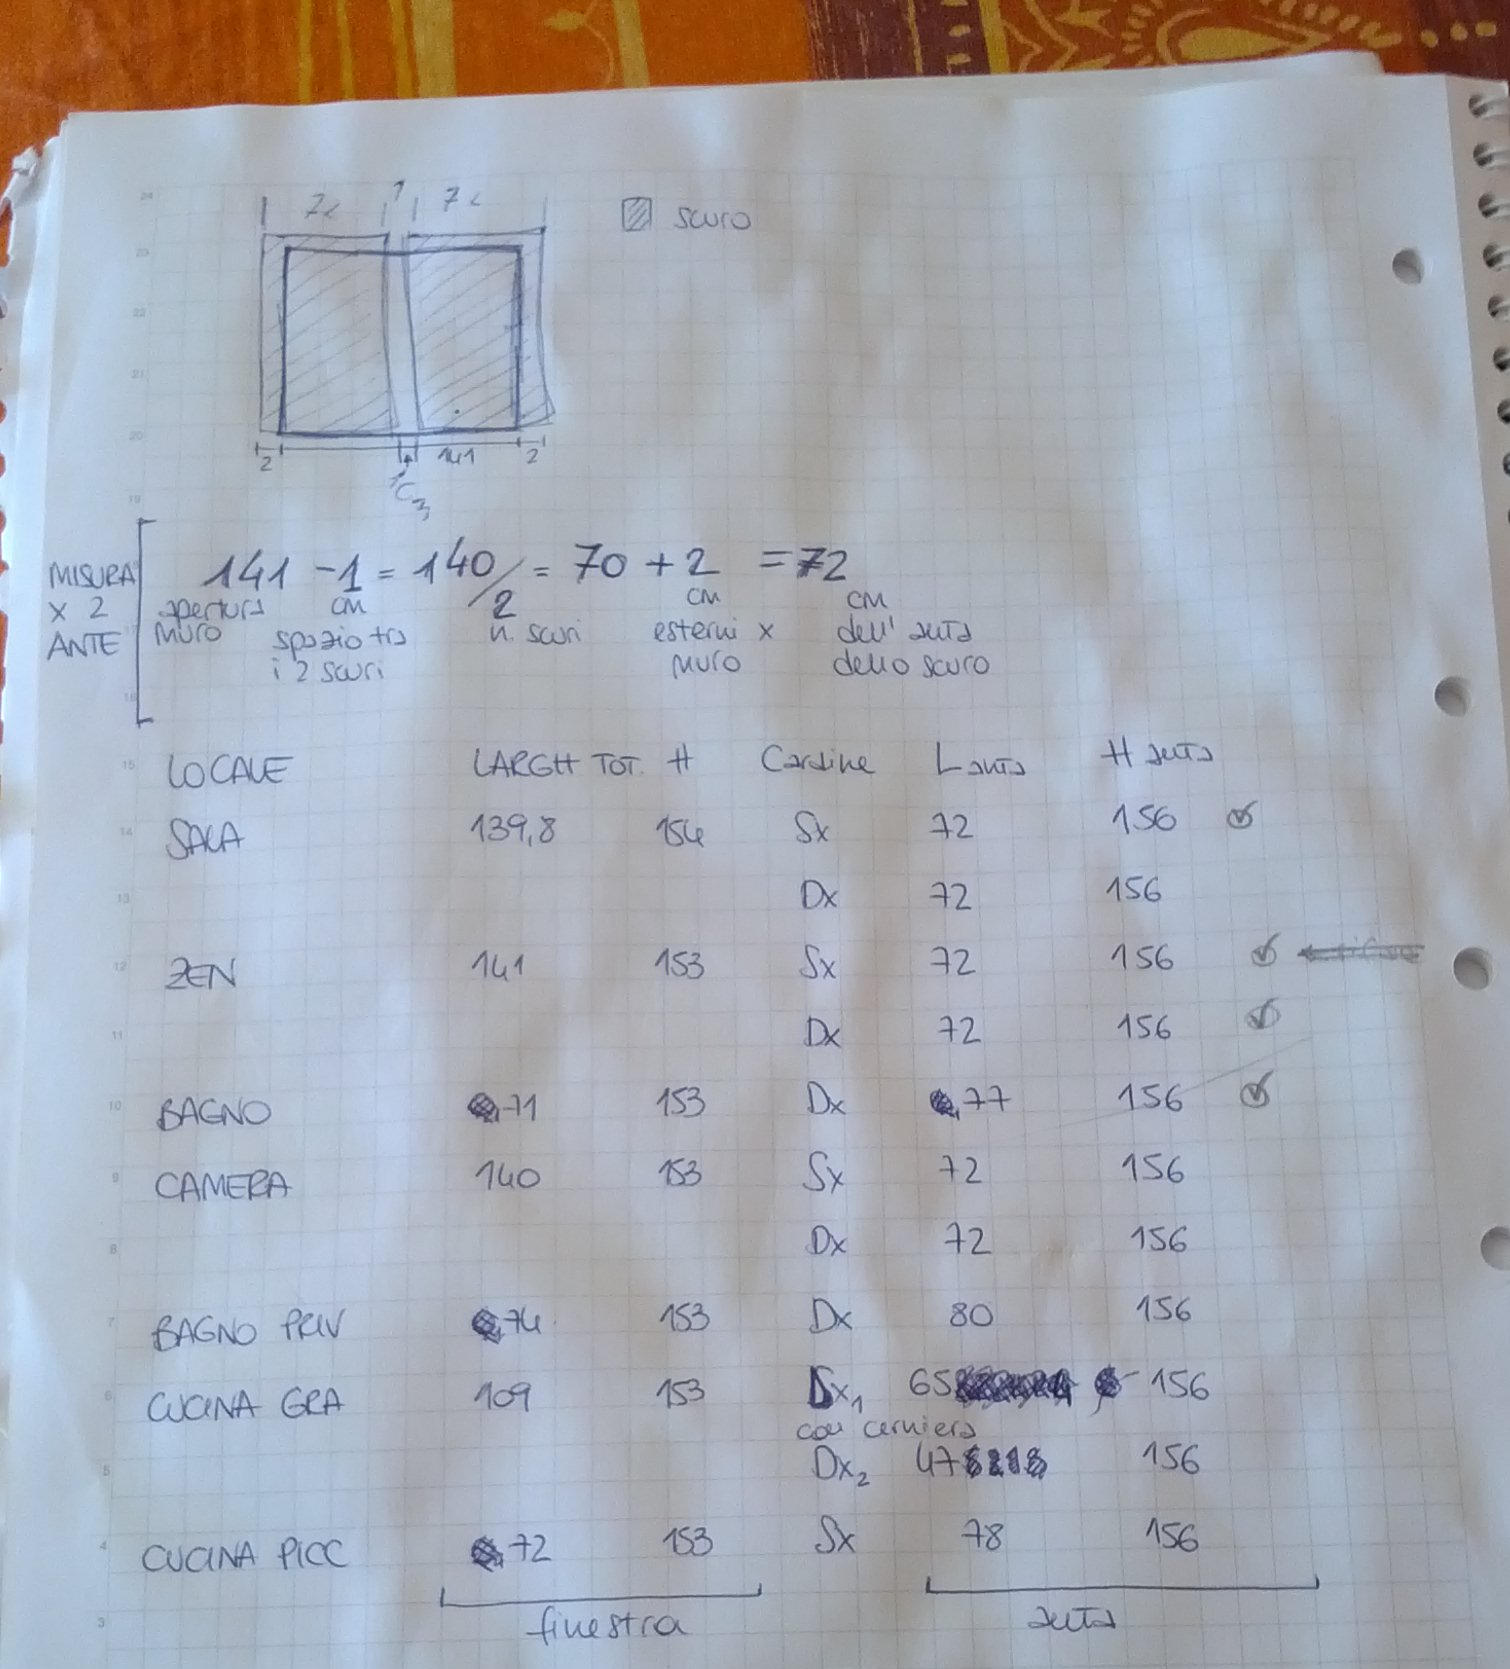 72 1 72
scuro
2 1 141 2
141 - 1 = 140/2 = 70 + 2 = 72
MISURA x 2 ANTE
apertura muro cm spazio tra i 2 scuri n. scuri cm esterni x muro cm dell'anta dello scuro
LOCALE LARGH TOT. H Cardine L anta H anta
SALA 139,8 154 Sx 72 156
Dx 72 156
ZEN 141 153 Sx 72 156
Dx 72 156
BAGNO 71 153 Dx 77 156
CAMERA 140 153 Sx 72 156
Dx 72 156
BAGNO PRIV 74 153 Dx 80 156
CUCINA GRA 109 153 Dx1 65 156
con cerniera
Dx2 47 156
CUCINA PICC 72 153 Sx 78 156
finestra anta